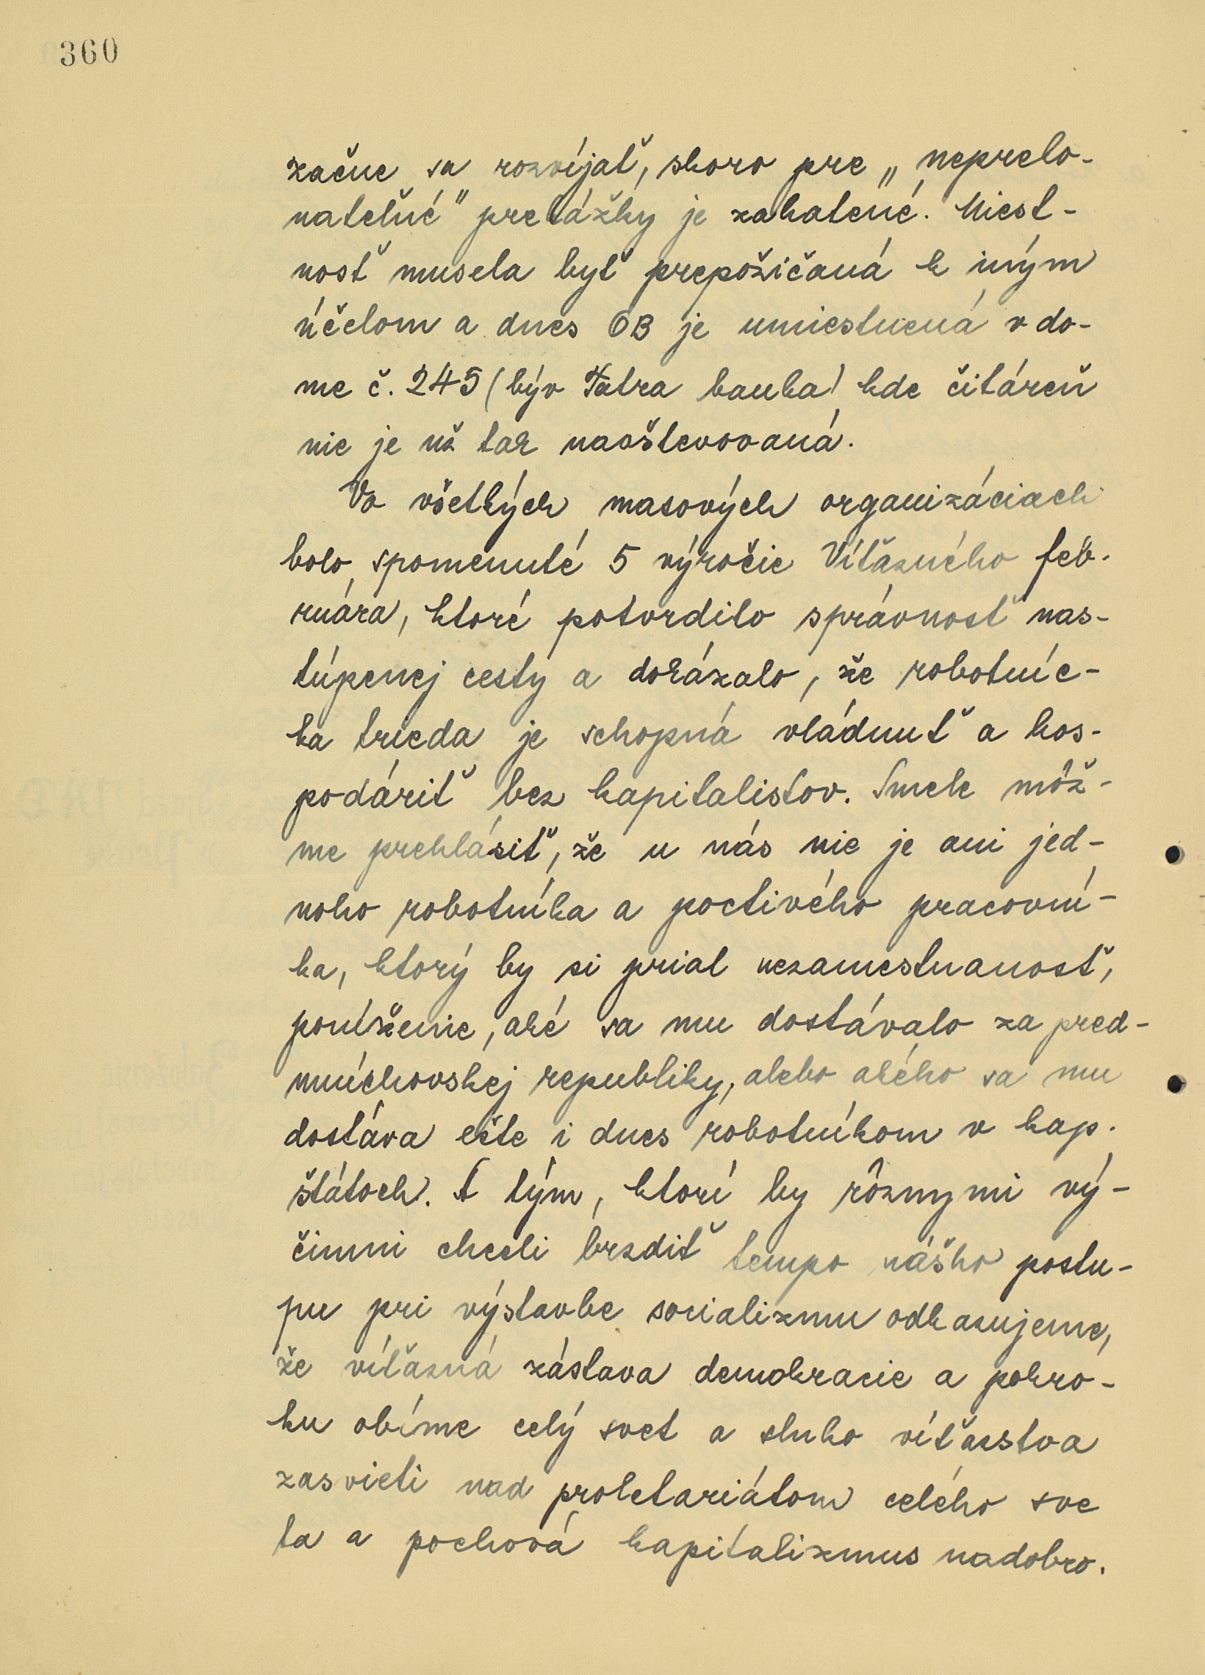 360
začne sa rozvíjať, skoro pre „neprelo-
nateľné" pretážky je zahatené. Miest-
nosť musela byť prepožičaná k iným
účelom a dnes OB je umiestnená v do-
me č. 245 (býv Tatra banka) kde čitáreň
nie je už tak navštevovaná.
Vo všetkých masových organizáciach
bolo spomenuté 5 výročie Víťazného feb-
ruára, ktoré potvrdilo správnosť nas-
túpenej cesty a dokázalo, že robotníc-
ka trieda je schopná vládnuť a hos-
podáriť bez kapitalistov. Smele môž-
me prehlásiť, že u nás nie je ani jed-
noho robotníka a poctivého pracovní-
ka, ktorý by si prial nezamestnanosť,
poníženie, aké sa mu dostávalo za pred-
mníchovskej republiky, alebo akého sa mu
dostáva ešte i dnes robotníkom v kap.
štátoch. A tým, ktorí by rôznymi vý-
činmi chceli brzdiť tempo nášho postu-
pu pri výstavbe socializmu odkazujeme,
že víťazná zástava demokracie a pokro-
ku obíme celý svet a slnko víťazstva
zasvieti nad proletariátom celého sve
ta a pochová kapitalizmus nadobro.